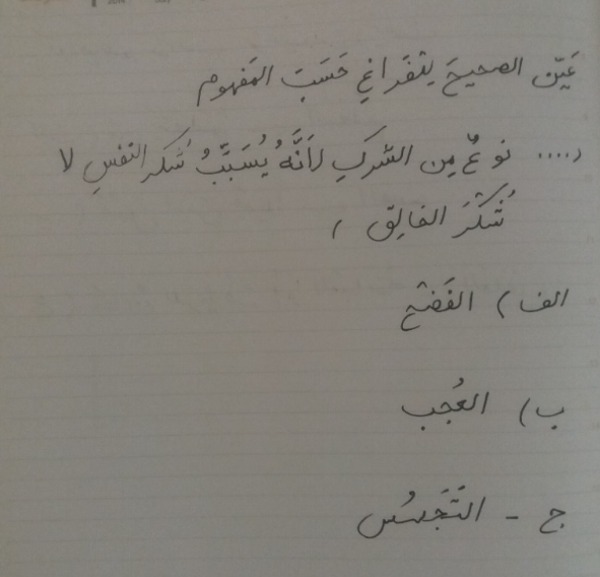 عَيِّن الصحيحَ لِلْفَراغِ حَسَبَ المَفهوم
«.... نوعٌ مِن الشركِ لأَنَّهُ يُسَبِّبُ شُكر النفسِ لا
شُكْرَ الخالِقِ»
الف) الفَضْح
ب) العُجب
ج - التَّجَسُّس